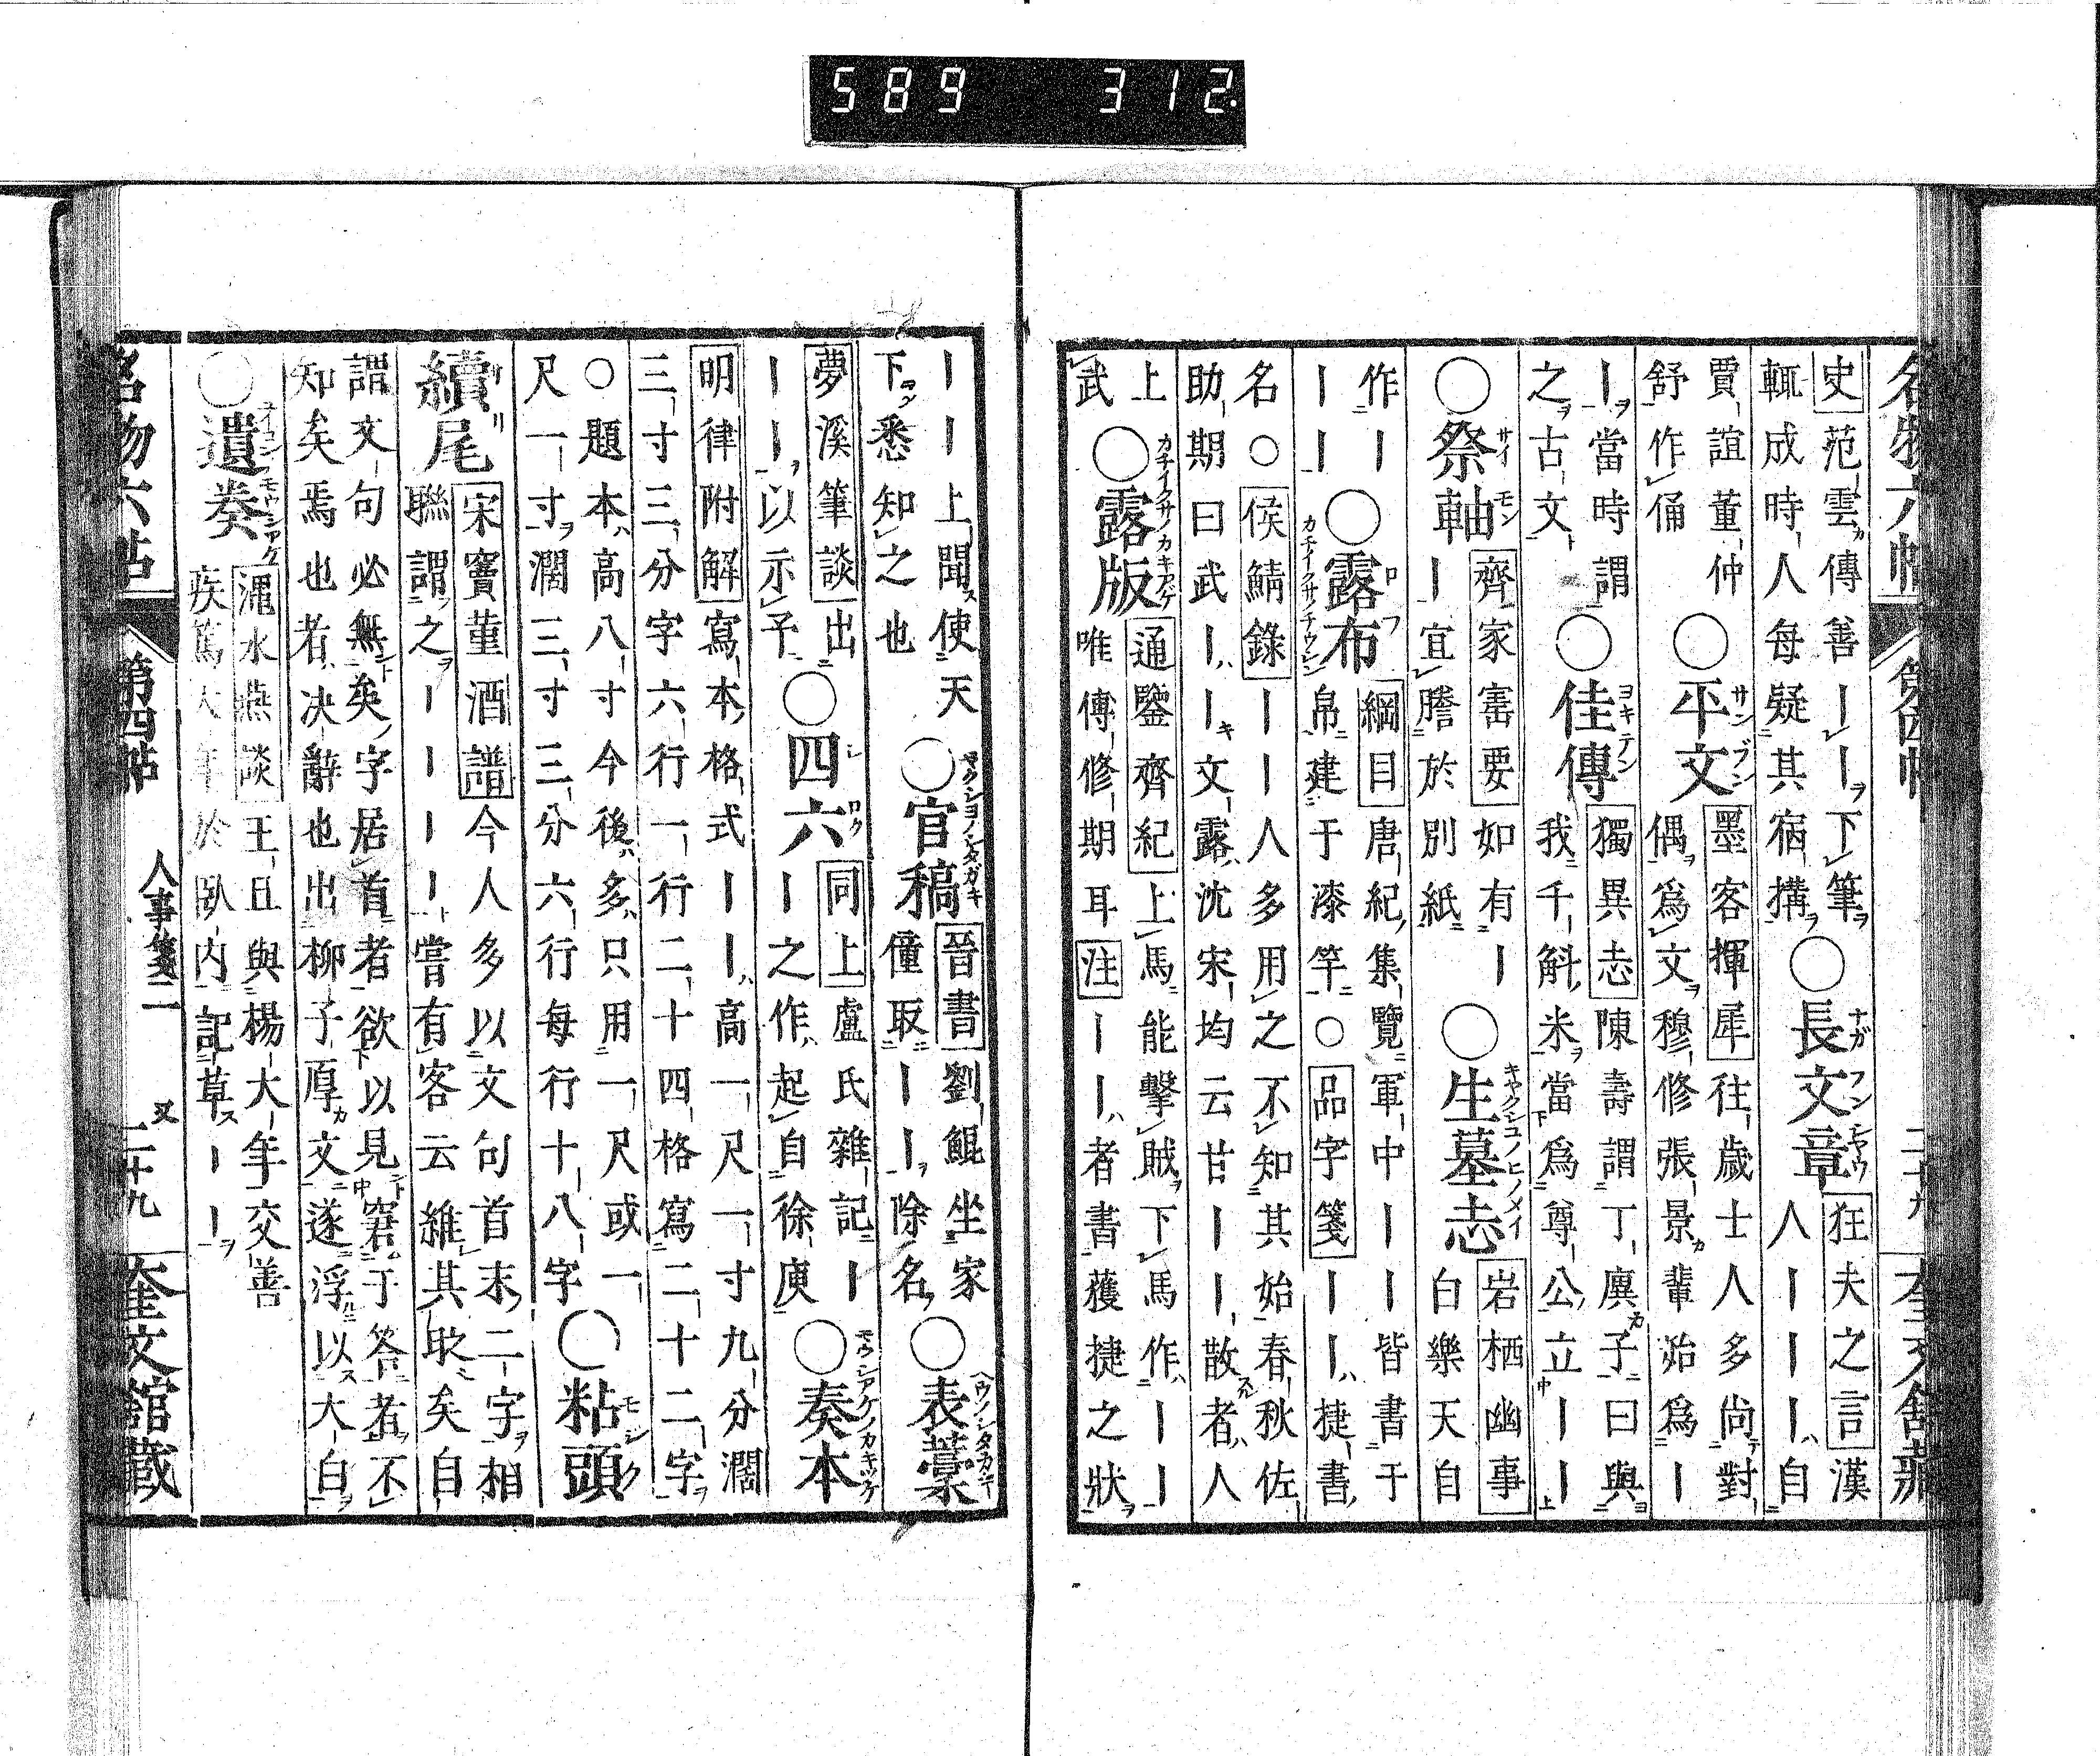 589 312.
名物六帖 第四帖 二十九 奎文館藏
史范雲傳善〡〡下筆輒成時人每疑其宿搆○長文章狂夫之言漢
賈誼董仲舒作俑人〡〡〡自
○平文墨客揮犀往歲士人多尚對偶爲文穆修張景輩始爲〡
〡當時謂之古文○佳傳獨異志陳壽謂丁廙子曰與我千斛米當爲尊公立〡〡
○祭軸齊家寚要如有〡〡宜謄於別紙○生墓志岩栖幽事白樂天自
作〡〡〡○露布綱目唐紀集覽軍中〡〡皆書于帛建于漆竿○品字箋〡〡捷書
名○侯鯖錄〡〡人多用之不知其始春秋佐助期曰武〡〡文露沈宋均云甘〡〡散者人
上武○露版通鑒齊紀上馬能擊賊下馬作〡〡唯傅修期耳注〡〡者書獲捷之狀
〡〡上聞使天下悉知之也○官稿晉書劉鯤坐家僮取〡〡除名○表藁
夢溪筆談出〡〡以示予○四六同上盧氏雜記〡〡之作起自徐庾○奏本
明律附解寫本格式〡〡高一尺一寸九分濶三寸三分字六行一行二十四格寫二十二字
○題本高八寸今後多只用一尺或一尺一寸濶三寸三分六行每行十八字○粘頭
續尾宋竇董酒譜今人多以文句首末二字相聯謂之〡〡〡〡嘗有客云維其耿矣自
謂文句必無矣字居首者欲以見窘于答者不知矣焉也者决辭也出柳子厚文遂浮以大白
○遺奏澠水燕談王旦與楊大年交善疾篤大年於臥内記草〡〡
名物六帖 第四帖 人事箋二 又二十九 奎文館藏